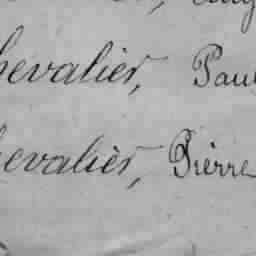 hevalier, Paul
hevalier, Pierre